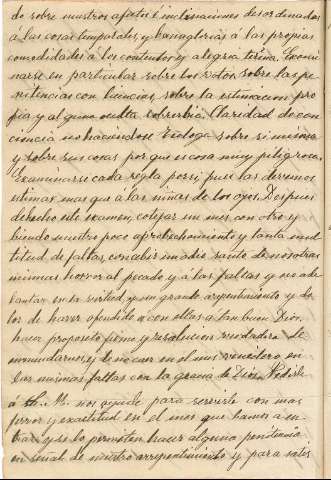 do sobre nuestros afectos é inclinaciones desordenadas
á las cosas temporales, y vanaglorias á las propias
comodidades á los contentos y alegria terrena. Exami
narse en particular sobre los votos, sobre las pe
nitencias con licencias, sobre la estimacion pro
pia y alguna oculta soberbia. Claridad de con
ciencia no haciendose Teologa sobre si misma
y sobre sus cosas por que es cosa muy peligrosa.
Examinarse cada regla por si pues las devemos
estimar mas que á las niñas de los ojos. Despues
de hecho este examen, cotejar un mes con otro y
biendo nuestro poco aprobechamiento y tanta mul
titud de faltas, concebir un odio santo de nosotras
mismas horror al pecado, y á las faltas y no ade
lantar en la virtud, y un grande arrepentimiento y do
lor de haver ofendido con ellas á tan buen Dios.
hacer proposito firme y resolucion verdadera de
enmendarnos, y de no caer en el mes venidero en
las mismas faltas con la gracia de Dios. Pedirle
á nos ayude para servirle con mas
fervor y exactitud en el mes que bamos a en
trar y si lo permiten hacer alguna penitencia
en señal de nuestro arrepentimiento y para satis